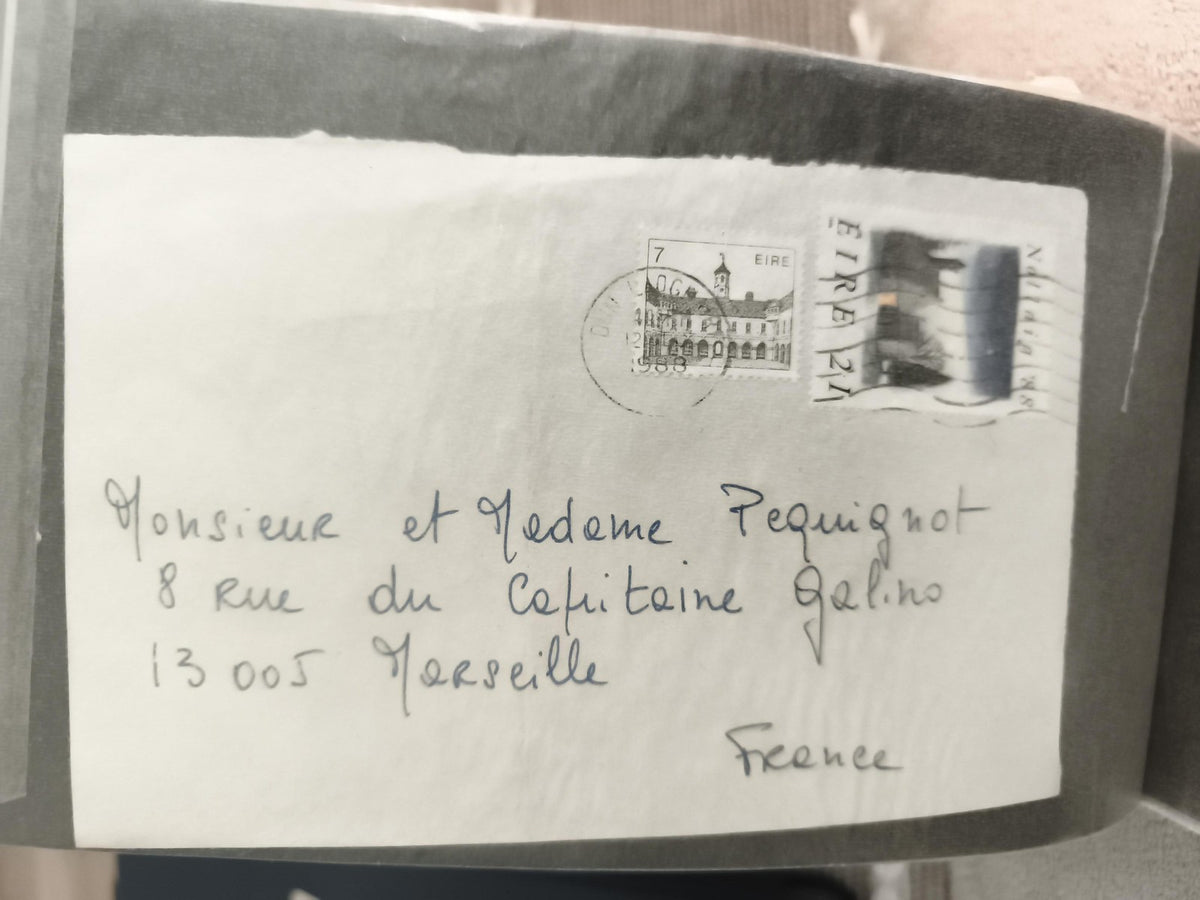 7 EIRE
1988
ÉIRE 21
Nollaig 88
Monsieur et Madame Pequignot
8 Rue du Capitaine Galino
13005 Marseille
France